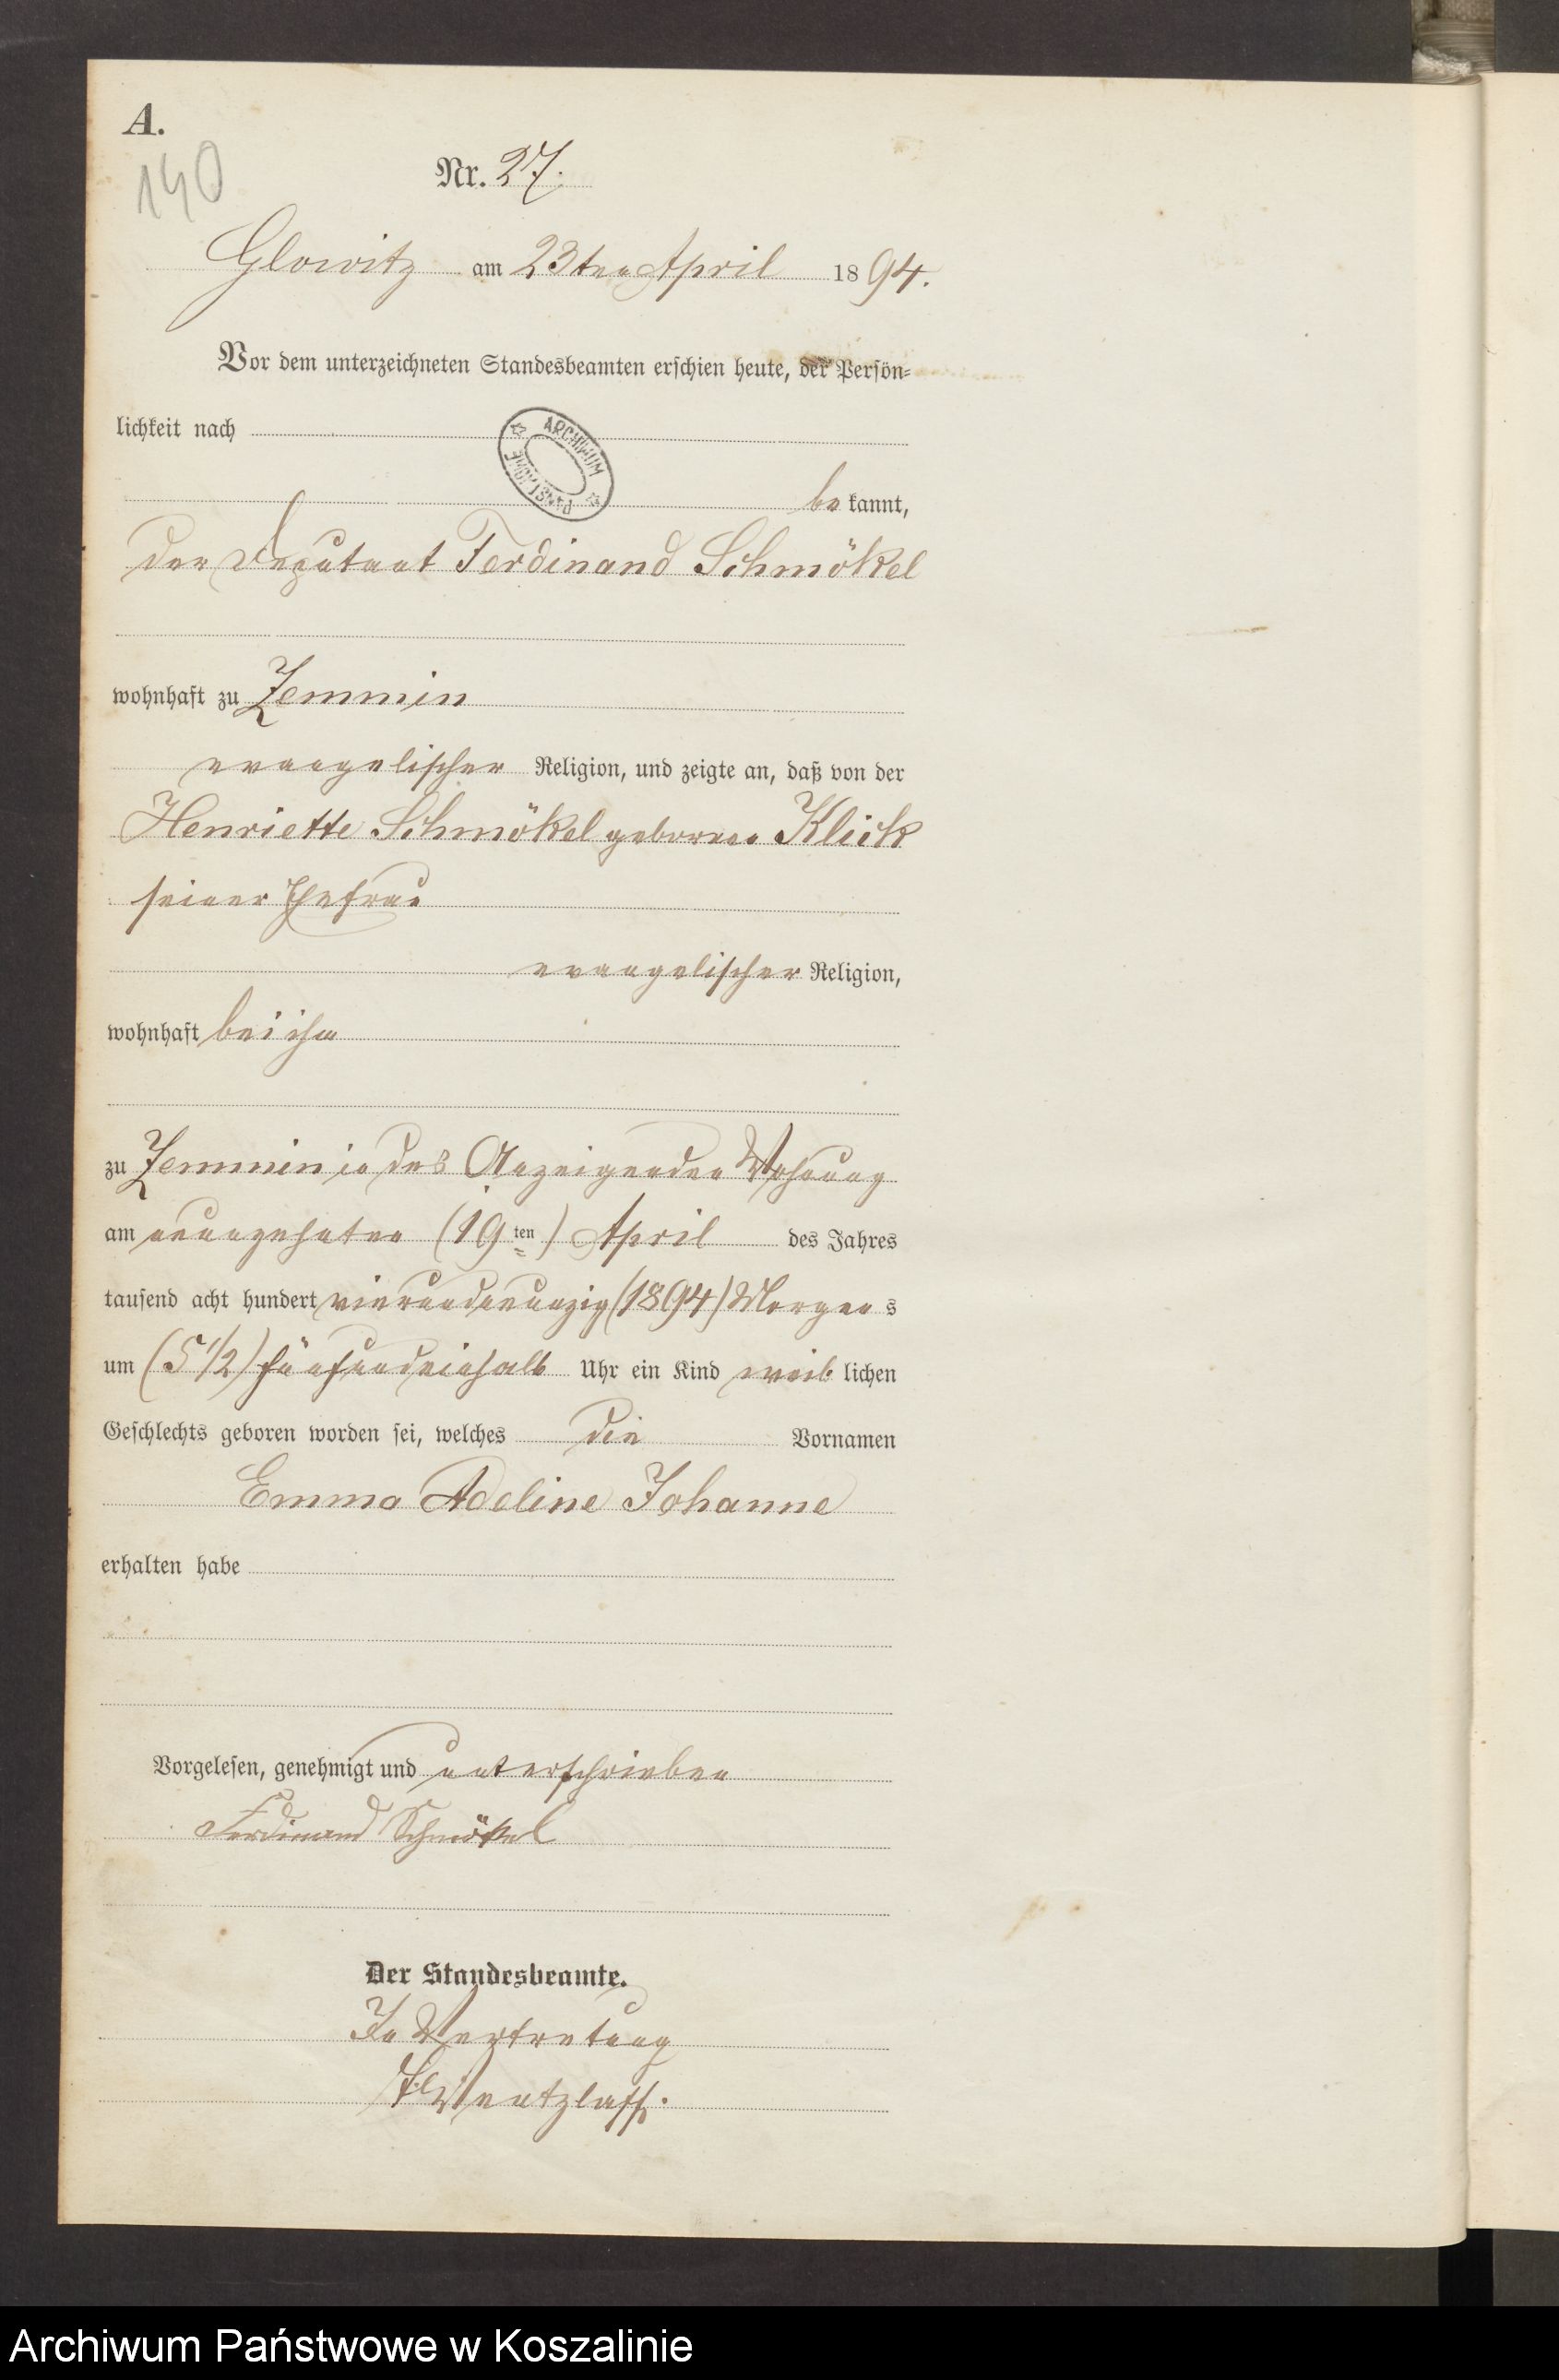 A.
140
Nr. 27.
Glowitz am 23ten April 1894.
Vor dem unterzeichneten Standesbeamten erschien heute, der Persön-
lichkeit nach
ARCHIWUM PAŃSTWOWE
bekannt,
der Deputant Ferdinand Schmökel
wohnhaft zu Zemmin
evangelischer Religion, und zeigte an, daß von der
Henriette Schmökel geborene Klick
seiner Ehefrau
evangelischer Religion,
wohnhaft bei ihm
zu Zemmin in des Anzeigenden Wohnung
am neunzehnten (19ten) April des Jahres
tausend acht hundert vierundneunzig (1894) Morgens
um (5 1/2) fünfundeinhalb Uhr ein Kind weiblichen
Geschlechts geboren worden sei, welches die Vornamen
Emma Adeline Johanne
erhalten habe
Vorgelesen, genehmigt und unterschrieben
Ferdinand Schmökel
Der Standesbeamte.
In Vertretung
Wentzlaff.
Archiwum Państwowe w Koszalinie